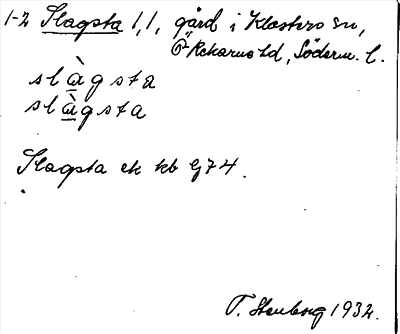 1-2 Slagsta 1,1, gård i Klosters sn,
Ö Rekarne hd, Söderm. l.
slàgsta
slàgsta
Slagsta ek kb G74.
T. Stenberg 1932.